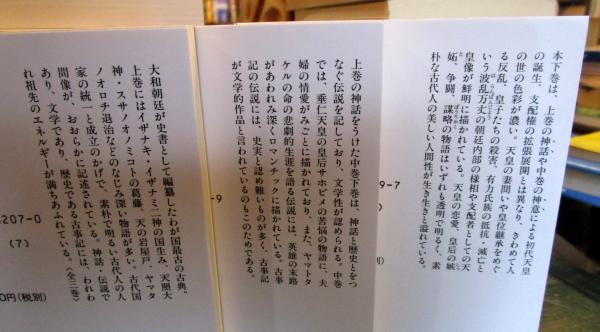 本下巻は、上巻の神話や中巻の神意による初代天皇
の誕生、支配権の拡張展開とは異なり、きわめて人
の世の色彩が濃い。天皇の妻問いや皇位継承をめぐ
る反乱、皇子たちの殺害、有力氏族の抵抗・滅亡と
いう波乱万丈の朝廷内部の様相や支配者としての天
皇像が鮮明に描かれている。天皇の恋愛、皇后の嫉
妬、争闘、謀略の物語はいずれも透明で明るく、素
朴な古代人の美しい人間性が生き生きと溢れている。
上巻の神話をうけた中巻下巻は、神話と歴史とをつ
なぐ伝説を記しており、文学性が認められる。中巻
では、垂仁天皇の皇后サホビメの苦悩の物語に、夫
婦の情愛がみごとに描かれており、また、ヤマトタ
ケルの命の悲劇的生涯を語る伝説には、英雄の末路
があわれみ深くロマンチックに描かれている。古事
記の伝説には、史実と認め難いものが多く、古事記
が文学的作品と言われているのもこのためである。
大和朝廷が史書として編纂したわが国最古の古典。
上巻にはイザナキ・イザナミ二神の国生み、天照大
神・スサノオノミコトの葛藤、天の岩屋戸、ヤマタ
ノオロチ退治などのなじみ深い物語が多い。古代国
家の統一と成立のかげで、素朴で明るい古代人の人
間像が、おおらかに記述されている。神話・伝説で
あり、文学であり、歴史である古事記には、われわ
れ祖先のエネルギーが満ちあふれている。〈全三巻〉
9-7
-9
207-0
(7)
0円(税別)